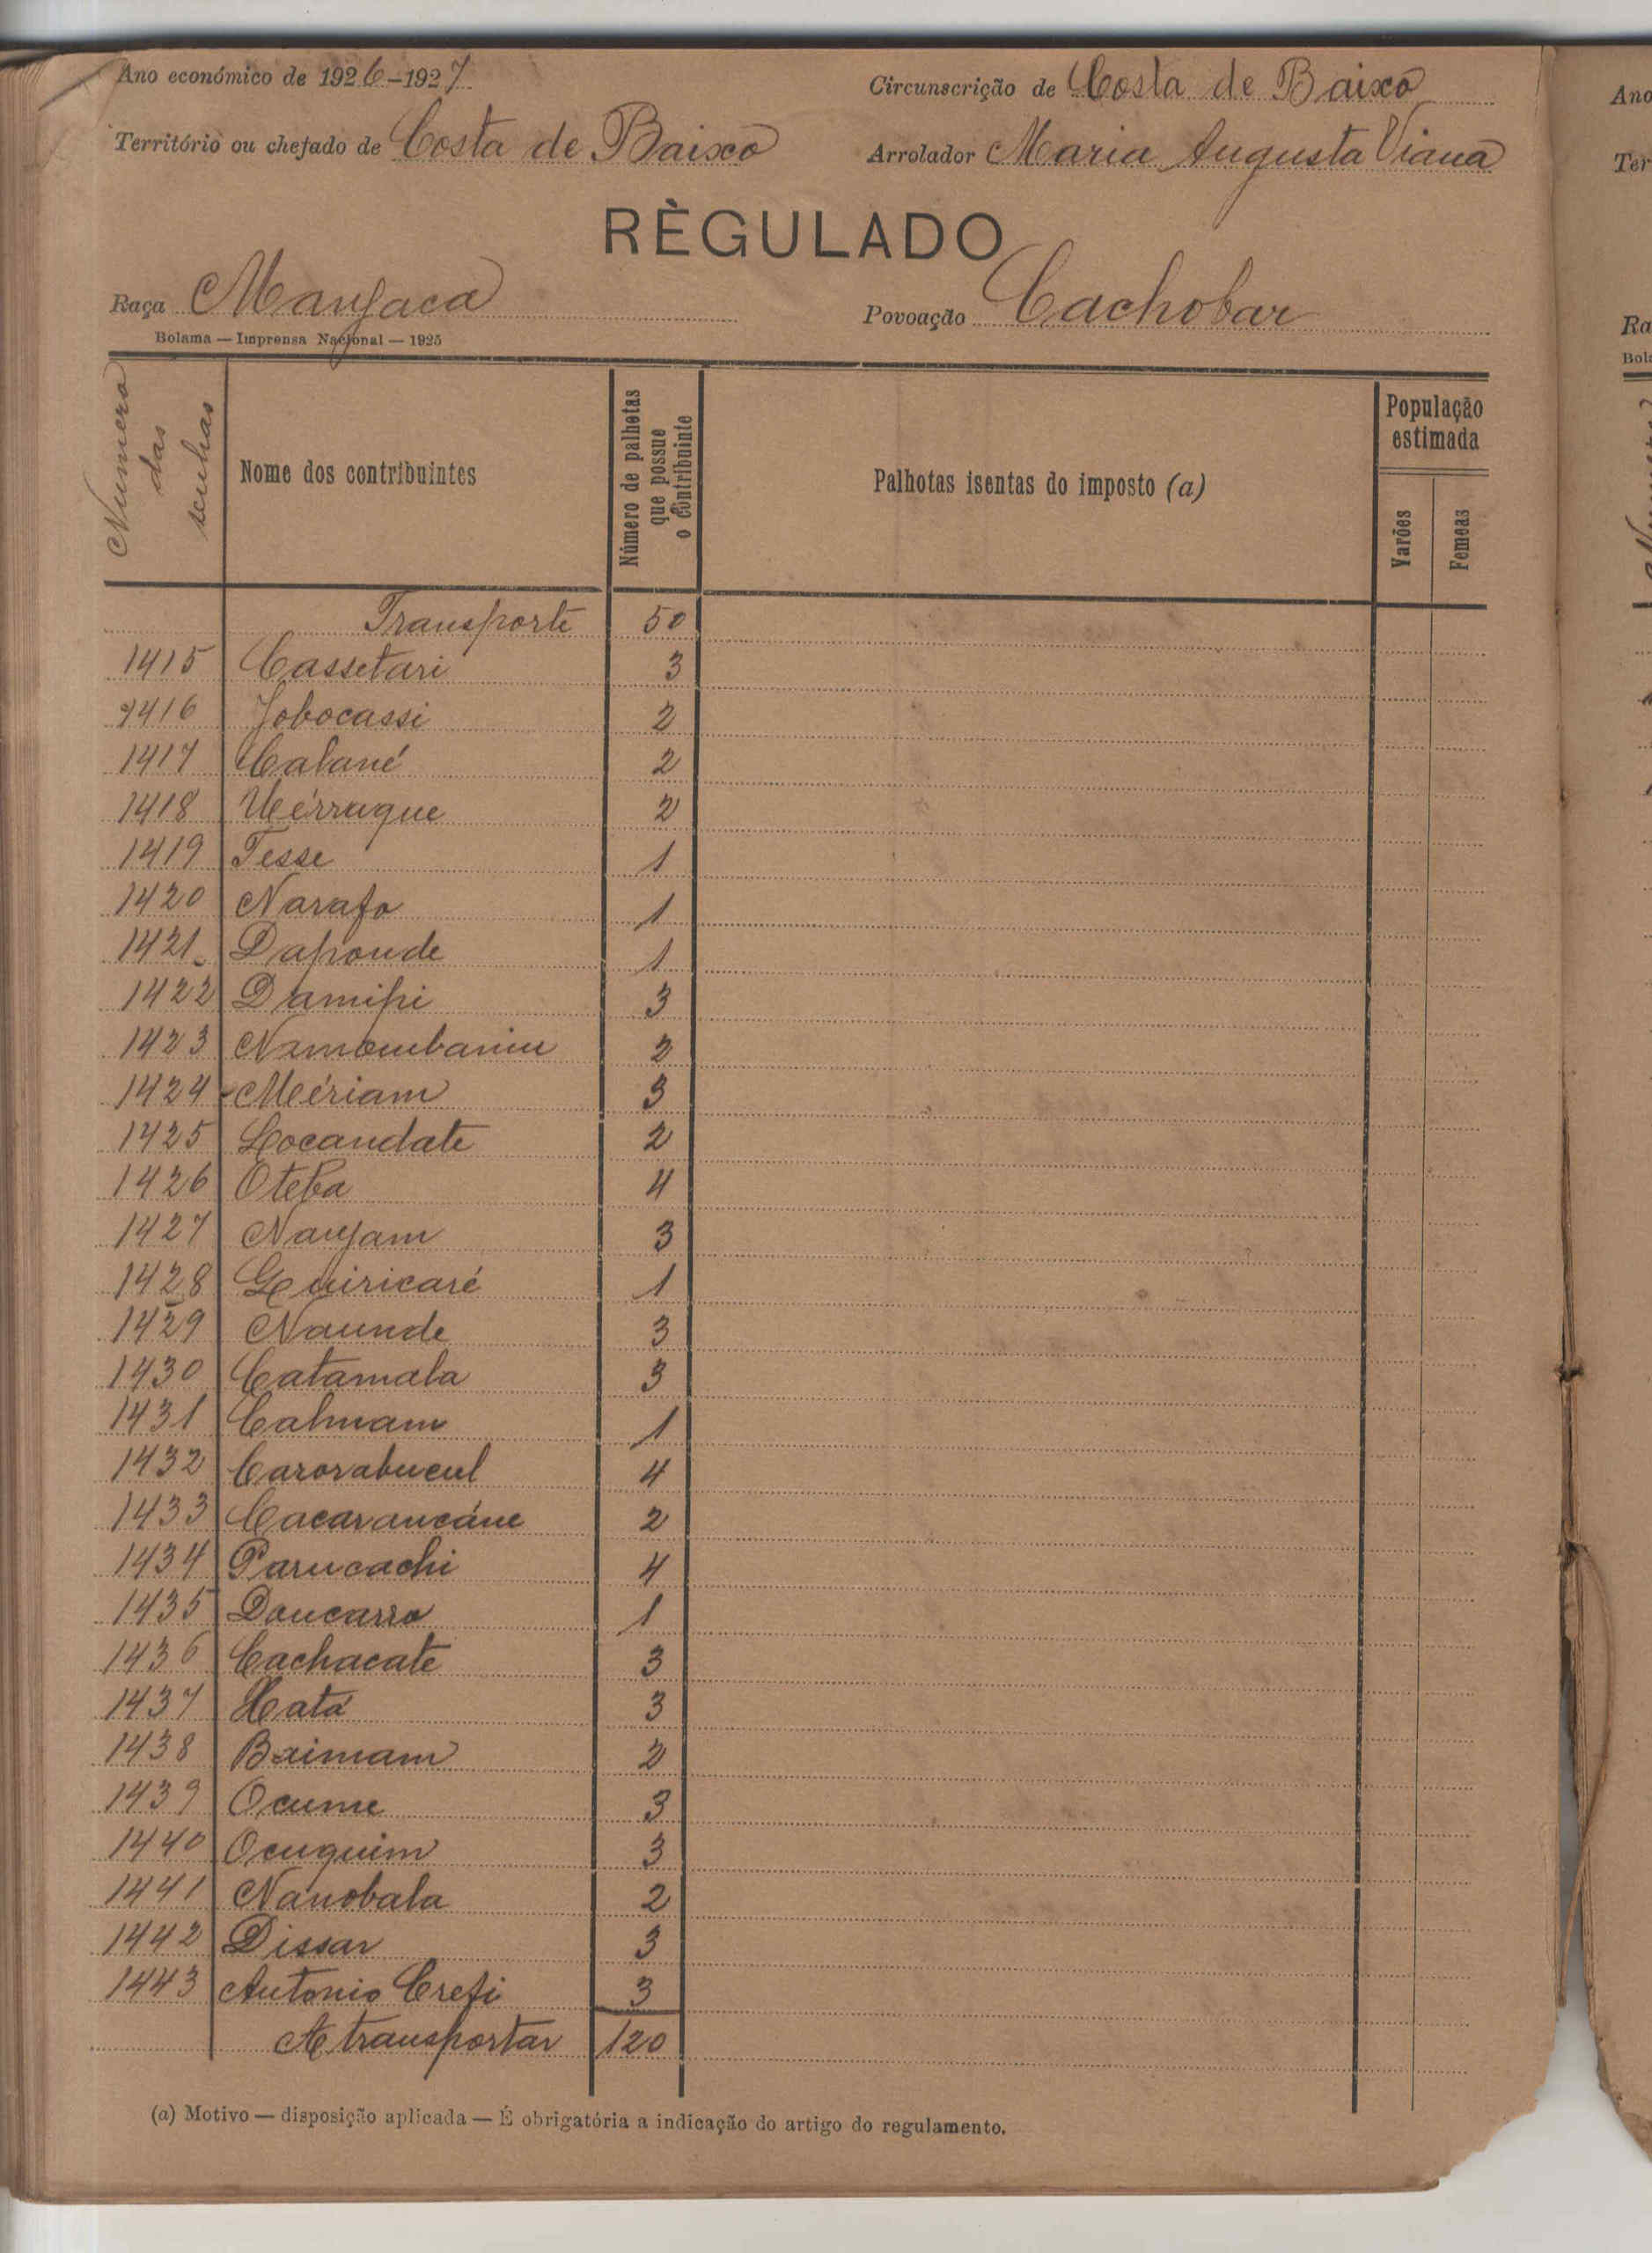 Ano económico de 1926-1927
Circunscrição de Costa de Baixo
Território ou chefado de Costa de Baixo
Arrolador Maria Augusta Viana
RÈGULADO
Raça Manjaca
Povoação Cachobar
Bolama — Imprensa Nacional — 1925
Numero das senhas
Nome dos contribuintes
Número de palhotas que possue o contribuinte
Palhotas isentas do imposto (a)
População estimada
Varões
Femeas
Transporte 50
1415 Cassetari 3
1416 Jobocassi 2
1417 Calané 2
1418 Uérruque 2
1419 Tesse 1
1420 Narafo 1
1421 Daponde 1
1422 Damipi 3
1423 Namombaniu 2
1424 Meériam 3
1425 Locandate 2
1426 Oteba 4
1427 Nanjam 3
1428 Guiricaré 1
1429 Naunde 3
1430 Catamala 3
1431 Calmam 1
1432 Carorabucul 4
1433 Cacarancáne 2
1434 Parucachi 4
1435 Doucarro 1
1436 Cachacate 3
1437 Hatá 3
1438 Baimam 2
1439 Ocume 3
1440 Ocuquim 3
1441 Nanobala 2
1442 Dissar 3
1443 Antonio Crefi 3
A transportar 120
(a) Motivo — disposição aplicada — É obrigatória a indicação do artigo do regulamento.
Ano
Ter
Ra
Bol